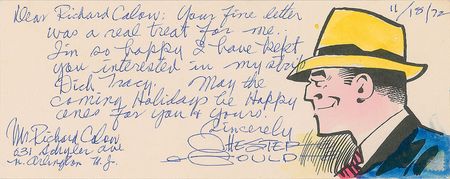 Dear Richard Calow: Your fine letter
was a real treat for me.
I'm so happy I have kept
you interested in my strip
Dick Tracy. May the
coming Holidays be Happy
ones for you & yours.
Sincerely
CHESTER
GOULD
11/18/72
Mr Richard Calow
631 Schuyler Ave
N. Arlington N.J.